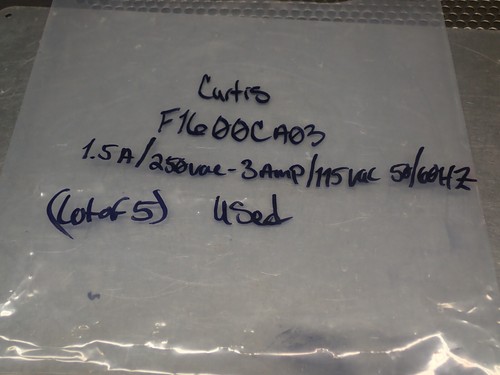 Curtis
F1600CA03
1.5A/250vac-3Amp/115vac 50/60HZ
(Lot of 5) Used